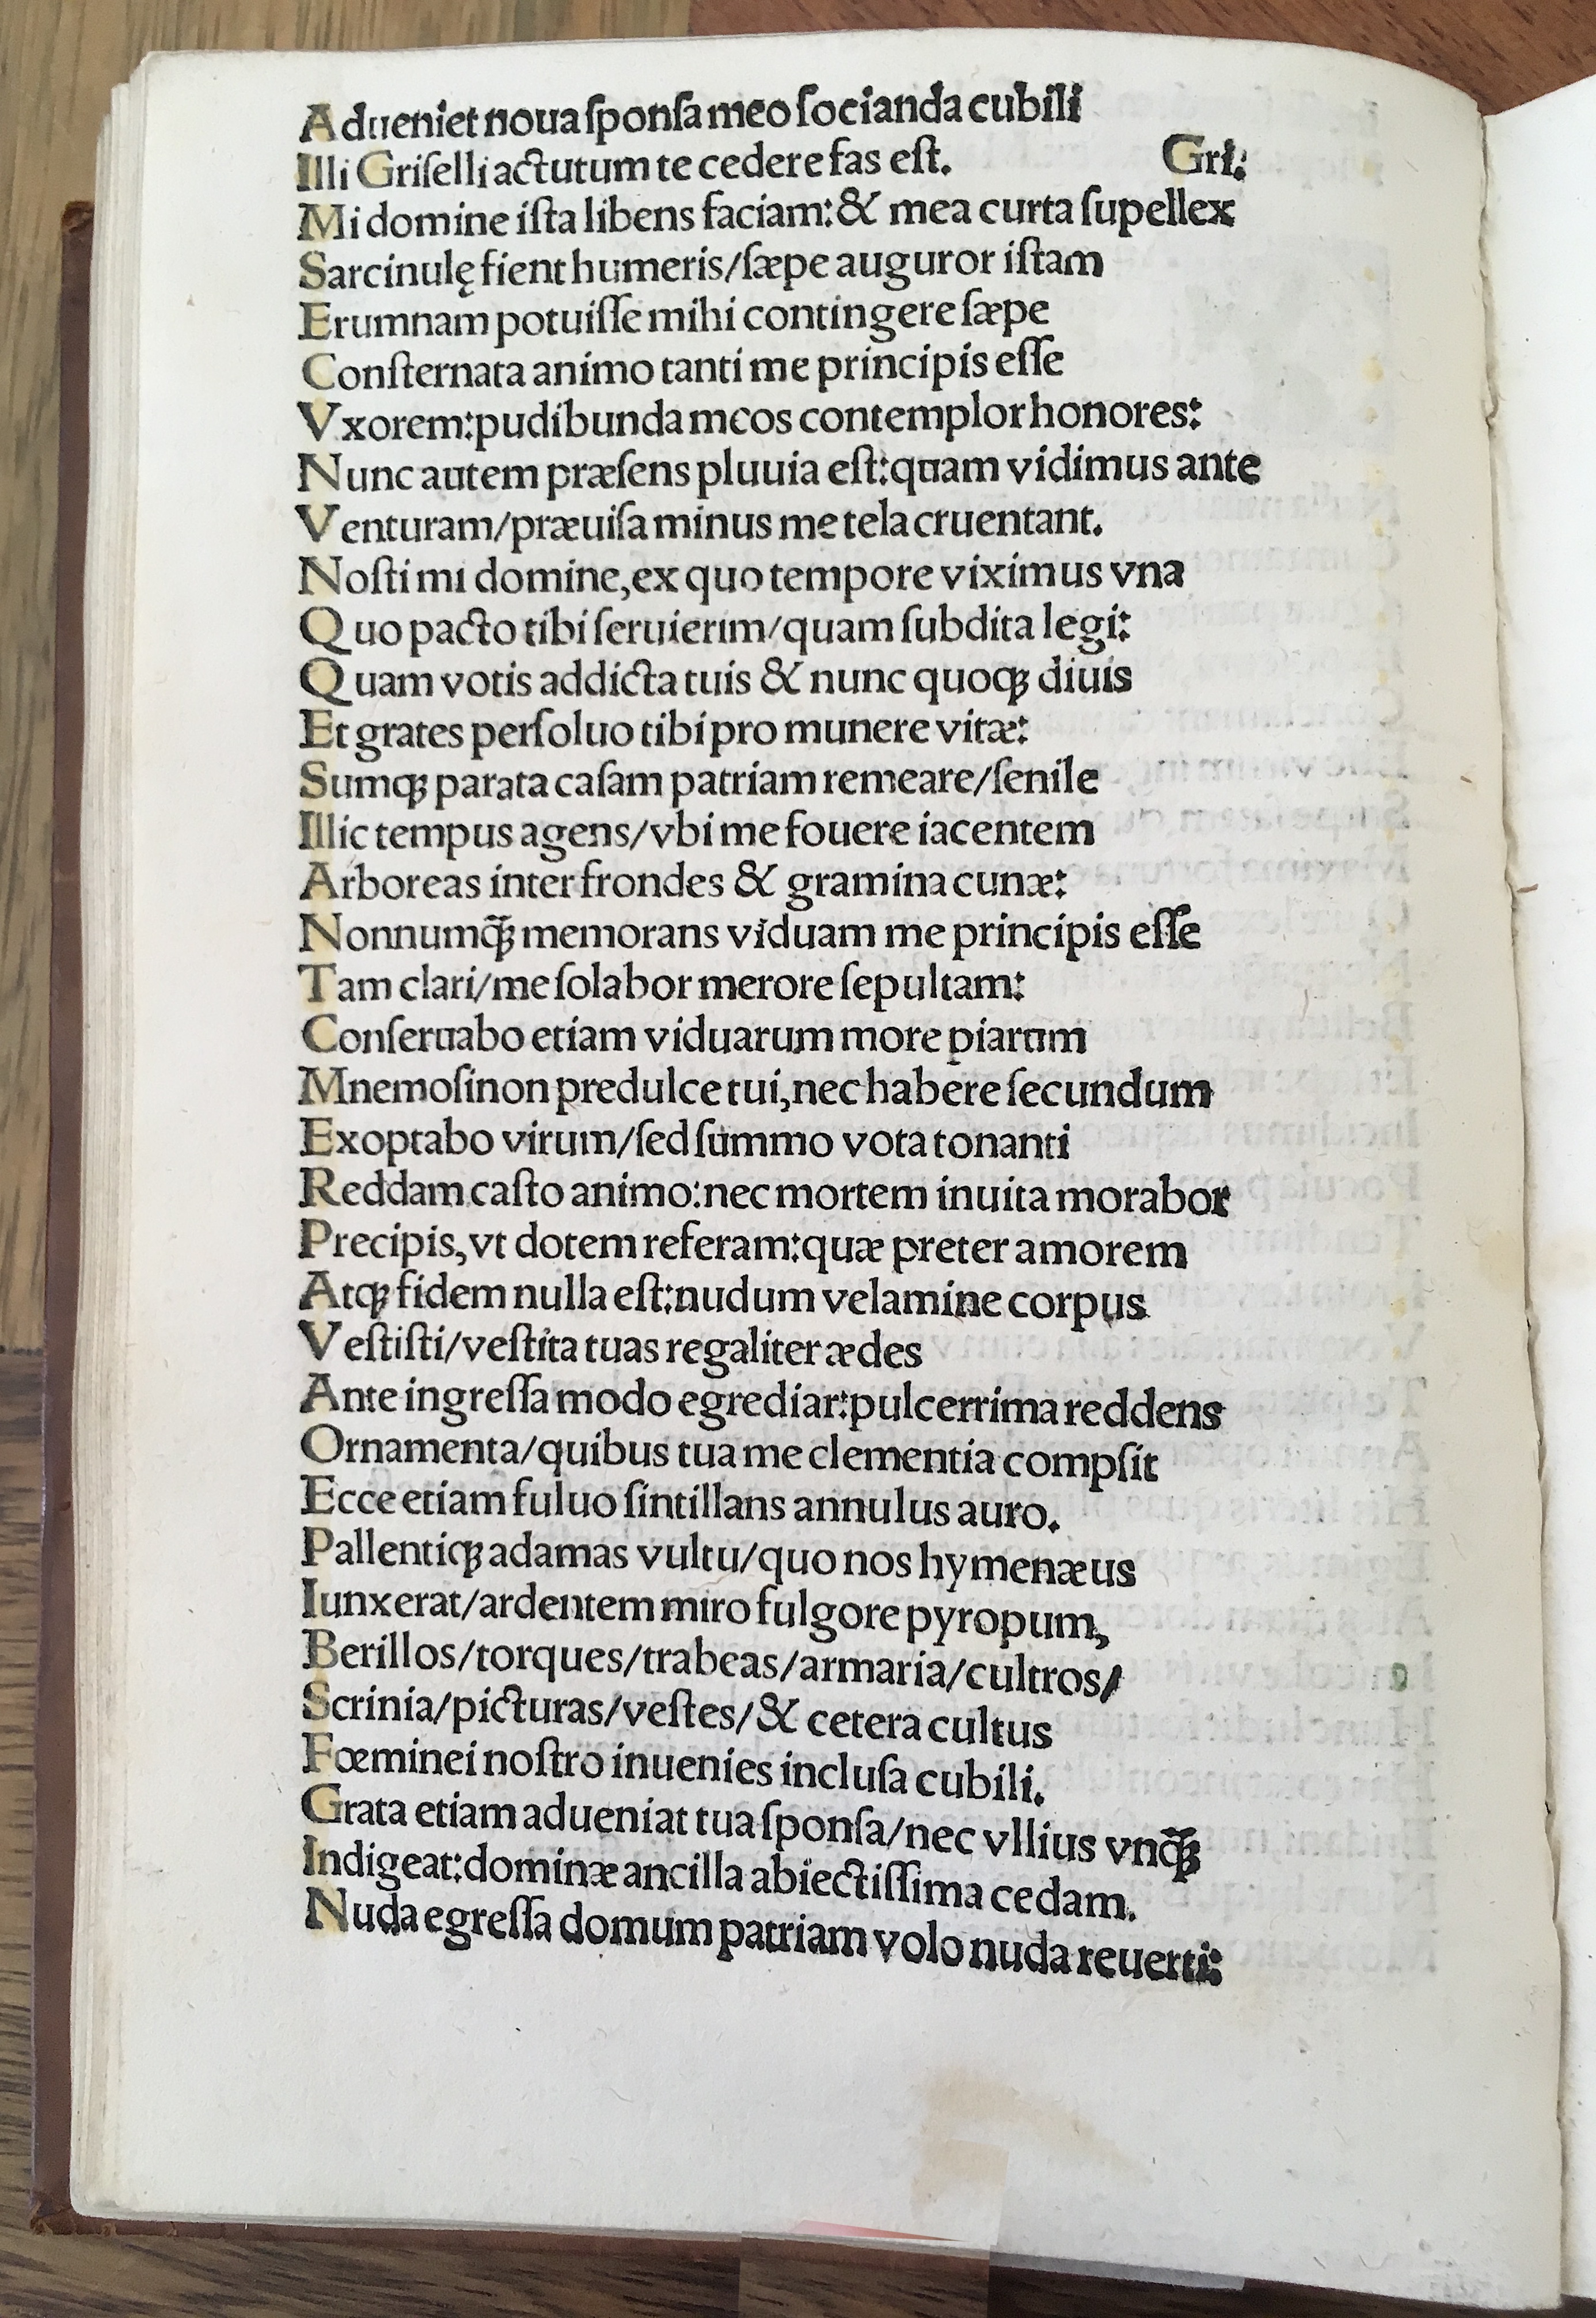 Adueniet noua ſponſa meo ſocianda cubili
Illi Griſelli actutum te cedere fas eſt. Gri:
Mi domine iſta libens faciam:& mea curta ſupellex
Sarcinulę fient humeris/ſæpe auguror iſtam
Erumnam potuiſſe mihi contingere ſæpe
Conſternata animo tanti me principis eſſe
Vxorem:pudibunda meos contemplor honores:
Nunc autem præſens pluuia eſt:quam vidimus ante
Venturam/præuiſa minus me tela cruentant.
Noſti mi domine,ex quo tempore viximus vna
Quo pacto tibi ſeruierim/quam ſubdita legi:
Quam votis addicta tuis & nunc quoqꝫ diuis
Et grates perſoluo tibi pro munere vitæ:
Sumqꝫ parata caſam patriam remeare/ſenile
Illic tempus agens/vbi me fouere iacentem
Arboreas inter frondes & gramina cunæ:
Nonnumq̃ꝫ memorans viduam me principis eſſe
Tam clari/me ſolabor merore ſepultam:
Conſeruabo etiam viduarum more piarum
Mnemoſinon predulce tui,nec habere ſecundum
Exoptabo virum/ſed ſummo vota tonanti
Reddam caſto animo:nec mortem inuita morabor
Precipis,vt dotem referam:quæ preter amorem
Atqꝫ fidem nulla eſt:nudum velamine corpus
Veſtiſti/veſtita tuas regaliter ædes
Ante ingreſſa modo egrediar:pulcerrima reddens
Ornamenta/quibus tua me clementia compſit
Ecce etiam fuluo ſintillans annulus auro.
Pallentiqꝫ adamas vultu/quo nos hymenæus
Iunxerat/ardentem miro fulgore pyropum,
Berillos/torques/trabeas/armaria/cultros/
Scrinia/picturas/veſtes/& cetera cultus
Fœminei noſtro inuenies incluſa cubili.
Grata etiam adueniat tua ſponſa/nec vllius vnq̃ꝫ
Indigeat:dominæ ancilla abiectiſſima cedam.
Nuda egreſſa domum patriam volo nuda reuerti: